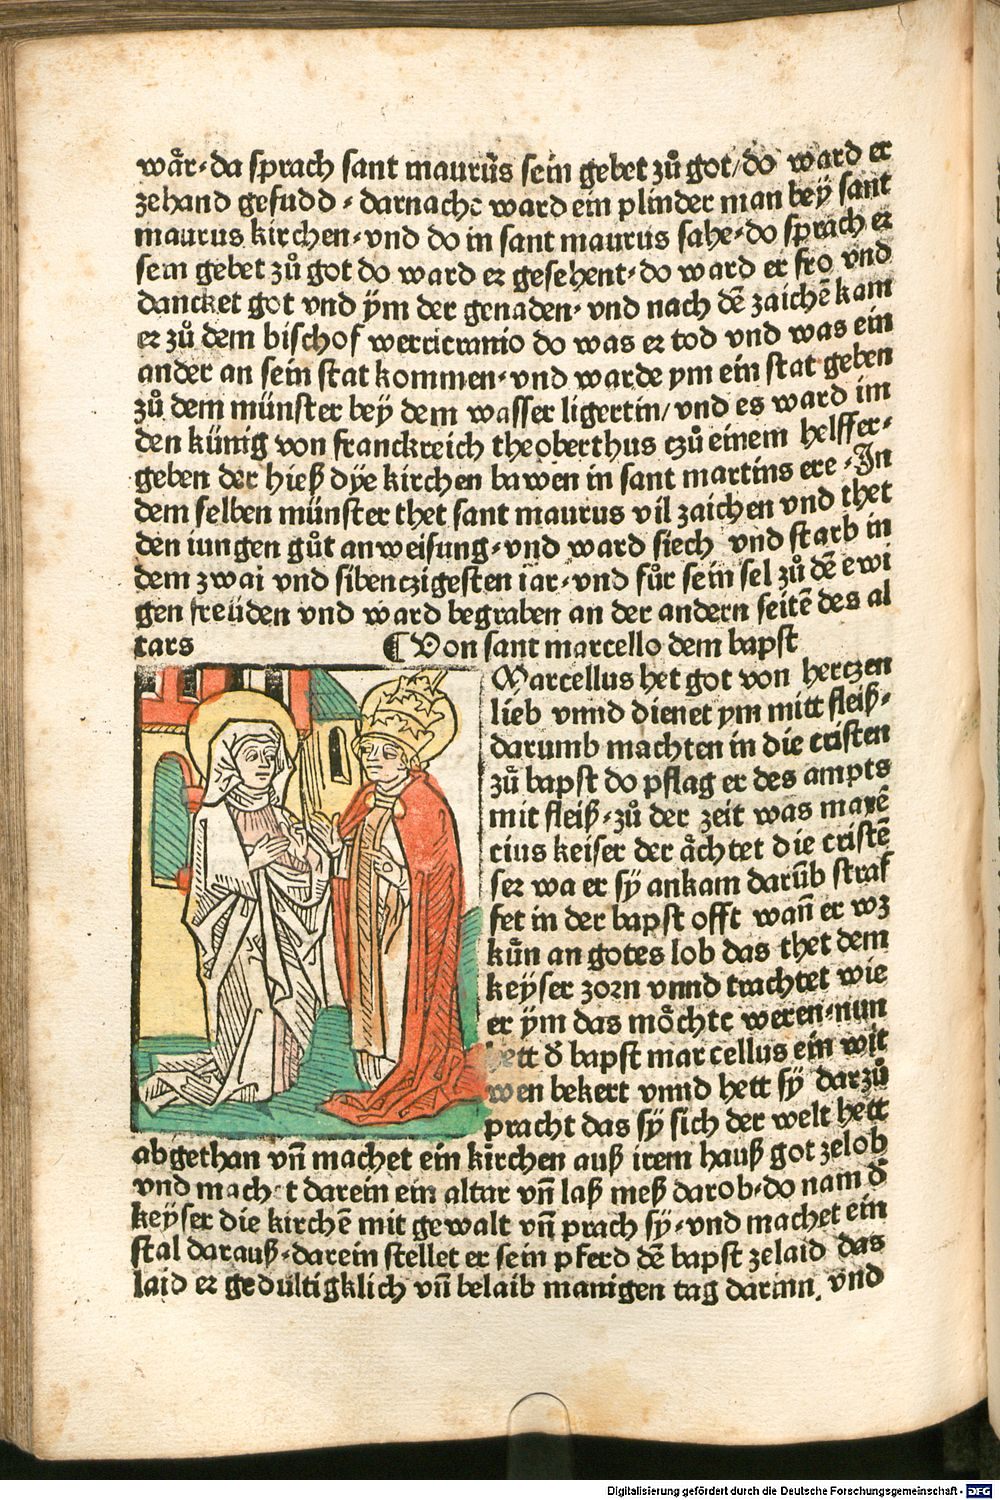 wår· da sprach sant maurus sein gebet zů got/ do ward er
zehand gesudd · darnache ward ein plinder man bey sant
maurus kirchen· vnd do in sant maurus sahe· do sprach er
sein gebet zů got do ward er gesehent· do ward er fro vnd
dancket got vnd ym der genaden· vnd nach dē zaichē kam
er zů dem bischof werricranio do was er tod vnd was ein
ander an sein stat kommen· vnd warde ym ein stat geben
zů dem münster bey dem wasser ligertin/ vnd es ward im
den künig von franckreich theoberthus czů einem helffer·
geben der hieß dÿe kirchen bawen in sant martins ere · In
dem selben münster thet sant maurus vil zaichen vnd thet
den iungen gůt anweisung· vnd ward siech vnd starb in
dem zwai vnd sibenczigesten iar· vnd fůr sein sel zů dē ewi
gen freüden vnd ward begraben an der andern seitē des al
tars ¶ Von sant marcello dem bapst
Marcellus het got von hertzen
lieb vnnd dienet ym mitt fleiß·
darumb machten in die cristen
zů bapst do pflag er des ampts
mit fleiß· zů der zeit was maxē
cius keiser der åchtet die cristē
ser wa er sÿ ankam darūb straf
fet in der bapst offt wañ er wz
kün an gotes lob das thet dem
keÿser zorn vnnd trachtet wie
er ÿm das möchte weren· nun
hett d̄ bapst marcellus ein wit
wen bekert vnnd hett sÿ darzů
pracht das sÿ sich der welt hett
abgethan vñ machet ein kirchen auß irem hauß got zelob
vnd machet darein ein altar vñ laß meß darob· do nam d̄
keÿser die kirchē mit gewalt vñ prach sÿ· vnd machet ein
stal darauß· darein stellet er sein pferd dē bapst zelaid das
laid er gedultigklich vñ belaib manigen tag darinn. vnd
Digitalisierung gefördert durch die Deutsche Forschungsgemeinschaft - DFG